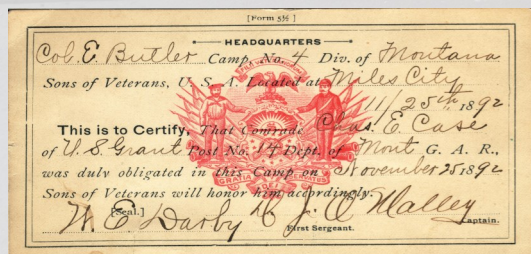 [Form 5½]
HEADQUARTERS
Col. E. Butler Camp, No. 4 Div. of Montana
Sons of Veterans, U. S. A. Located at Miles City
11/25th 1892
This is to Certify, That Comrade Chas. E. Case
of U.S. Grant Post No. 14 Dept. of Mont G. A. R.,
was duly obligated in this Camp on November 25 1892
Sons of Veterans will honor him accordingly.
[Seal.]
W. E. Darby J. C. Malley Captain.
First Sergeant.